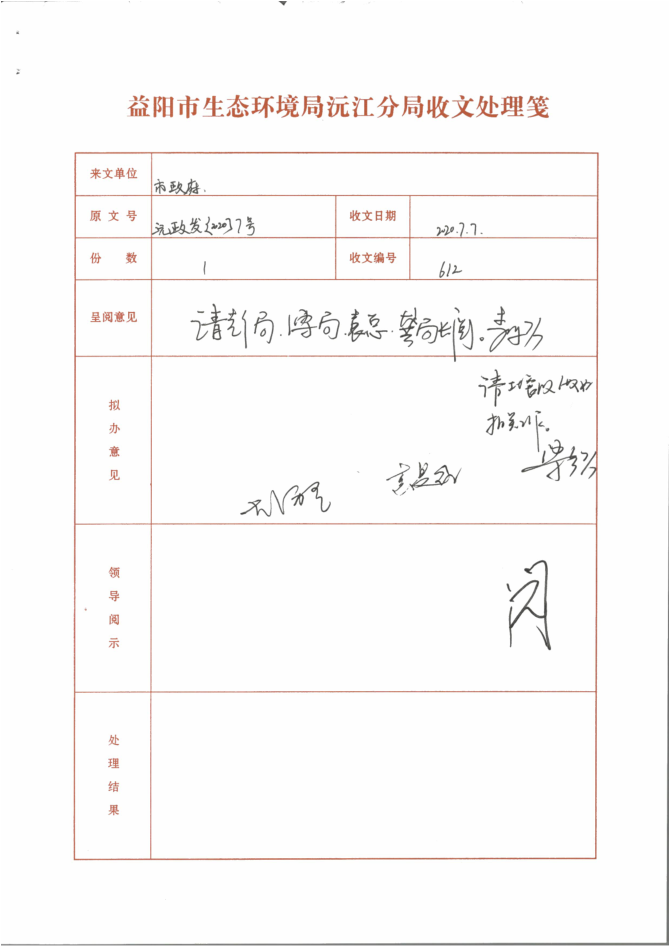 益阳市生态环境局沅江分局收文处理笺
来文单位 市政府.
原文号 沅政发〔2020〕7号 收文日期 2020.7.7.
份数 1 收文编号 612
呈阅意见 请彭局.谭局.袁总.龚局长阅。
拟办意见 请
领导阅示 阅
处理结果